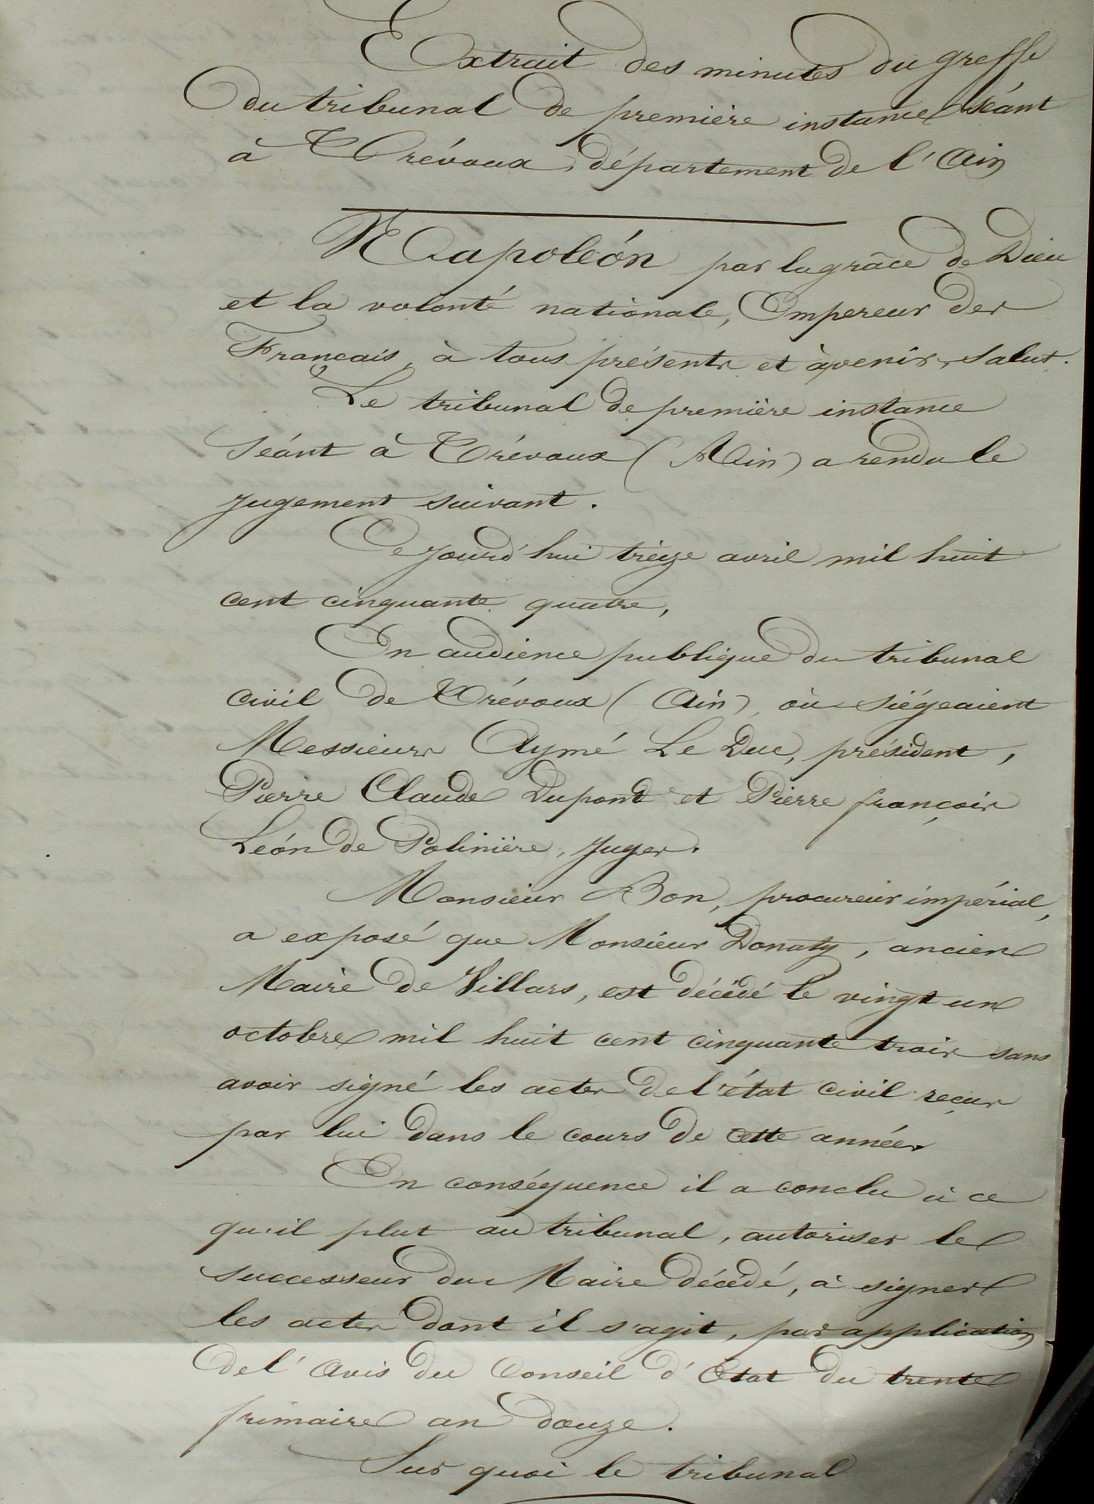 Extrait des minutes du greffe
du tribunal de première instance séant
à Trévoux, département de l'Ain
Napoléon par la grâce de Dieu
et la volonté nationale, Empereur des
Français, à tous présents et à venir, Salut.
Le tribunal de première instance
séant à Trévoux (Ain) a rendu le
jugement suivant.
Ce jourd'hui treize avril mil huit
cent cinquante quatre,
En audience publique du tribunal
civil de Trévoux (Ain), où siégeaient
Messieurs Aymé Le Duc, président,
Pierre Claude Dupond et Pierre françois
Léon de Polinière, Juges.
Monsieur Bon, procureur impérial,
a exposé que Monsieur Donaty, ancien
Maire de Villars, est décédé le vingt un
octobre mil huit cent cinquante trois sans
avoir signé les actes de l'état civil reçus
par lui dans le cours de cette année.
En conséquence il a conclu à ce
qu'il plut au tribunal, autoriser le
successeur du Maire décédé, à signer
les actes dont il s'agit, par application
de l'avis du Conseil d'Etat du trente
frimaire an douze.
Sur quoi le tribunal